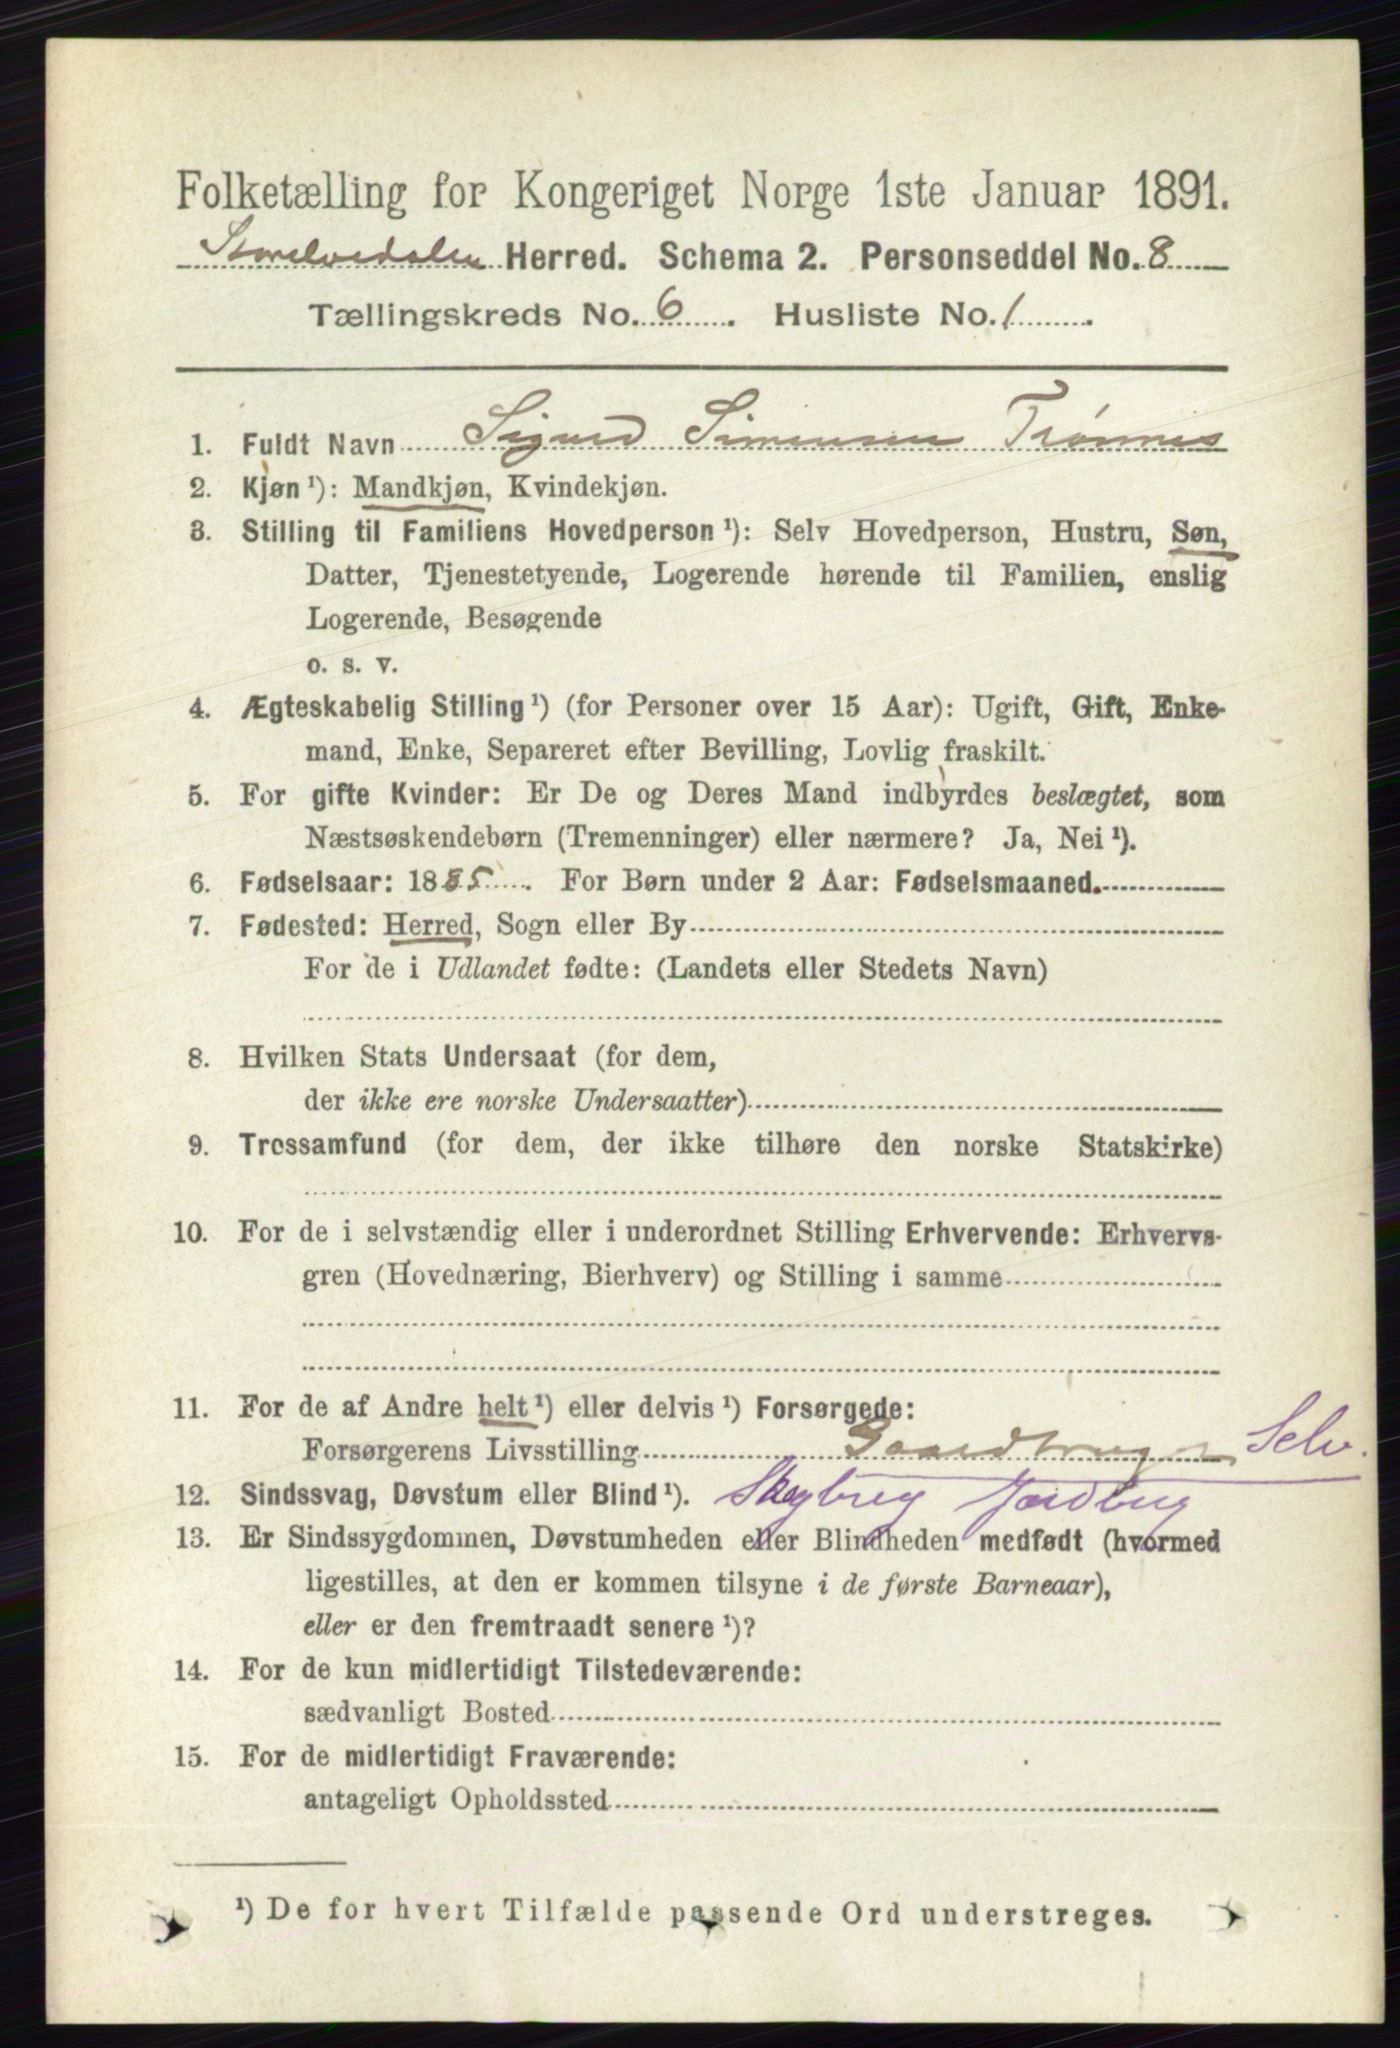 Folketælling for Kongeriget Norge 1ste Januar 1891.
Storelvedalen Herred. Schema 2. Personseddel No. 8
Tællingskreds No. 6. Husliste No. 1.
1. Fuldt Navn Sigurd Simensen Trønnes
2. Kjøn ¹): Mandkjøn, Kvindekjøn.
3. Stilling til Familiens Hovedperson ¹): Selv Hovedperson, Hustru, Søn,
Datter, Tjenestetyende, Logerende hørende til Familien, enslig
Logerende, Besøgende
o. s. v.
4. Ægteskabelig Stilling ¹) (for Personer over 15 Aar): Ugift, Gift, Enke-
mand, Enke, Separeret efter Bevilling, Lovlig fraskilt.
5. For gifte Kvinder: Er De og Deres Mand indbyrdes beslægtet, som
Næstsøskendebørn (Tremenninger) eller nærmere? Ja, Nei ¹).
6. Fødselsaar: 1885. For Børn under 2 Aar: Fødselsmaaned.
7. Fødested: Herred, Sogn eller By
For de i Udlandet fødte: (Landets eller Stedets Navn)
8. Hvilken Stats Undersaat (for dem,
der ikke ere norske Undersaatter)
9. Trossamfund (for dem, der ikke tilhøre den norske Statskirke)
10. For de i selvstændig eller i underordnet Stilling Erhvervende: Erhvervs-
gren (Hovednæring, Bierhverv) og Stilling i samme
11. For de af Andre helt ¹) eller delvis ¹) Forsørgede:
Forsørgerens Livsstilling Gaardbruger Selv.
12. Sindssvag, Døvstum eller Blind ¹). Skogbrug Jordbrug
13. Er Sindssygdommen, Døvstumheden eller Blindheden medfødt (hvormed
ligestilles, at den er kommen tilsyne i de første Barneaar),
eller er den fremtraadt senere ¹)?
14. For de kun midlertidigt Tilstedeværende:
sædvanligt Bosted
15. For de midlertidigt Fraværende:
antageligt Opholdssted
¹) De for hvert Tilfælde passende Ord understreges.